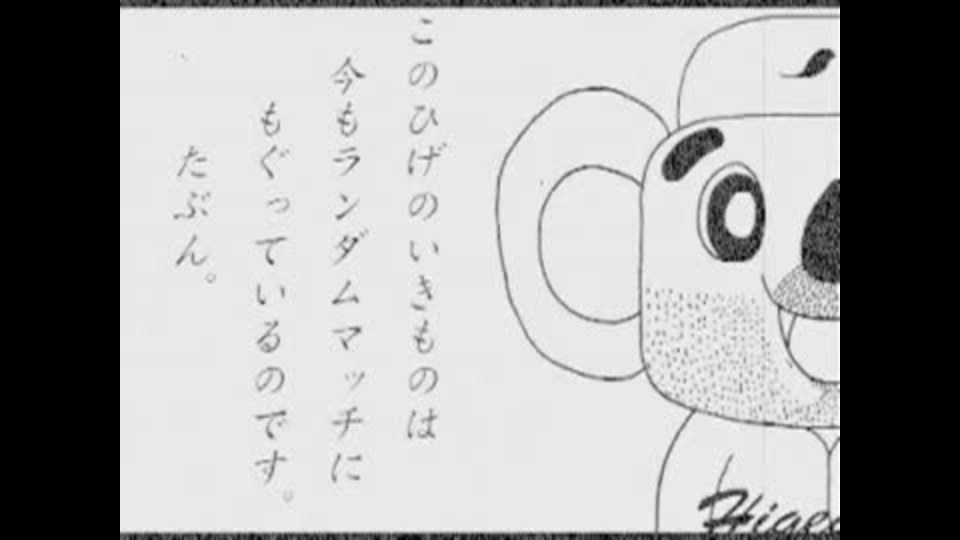 このひげのいきものは
今もランダムマッチに
もぐっているのです。
たぶん。